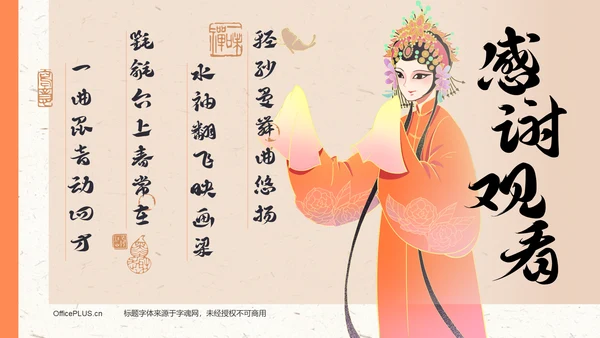 感谢观看
轻纱曼舞曲悠扬
水袖翻飞映画梁
氍毹台上春常在
一曲眾音动四方
OfficePLUS.cn
标题字体来源于字魂网，未经授权不可商用